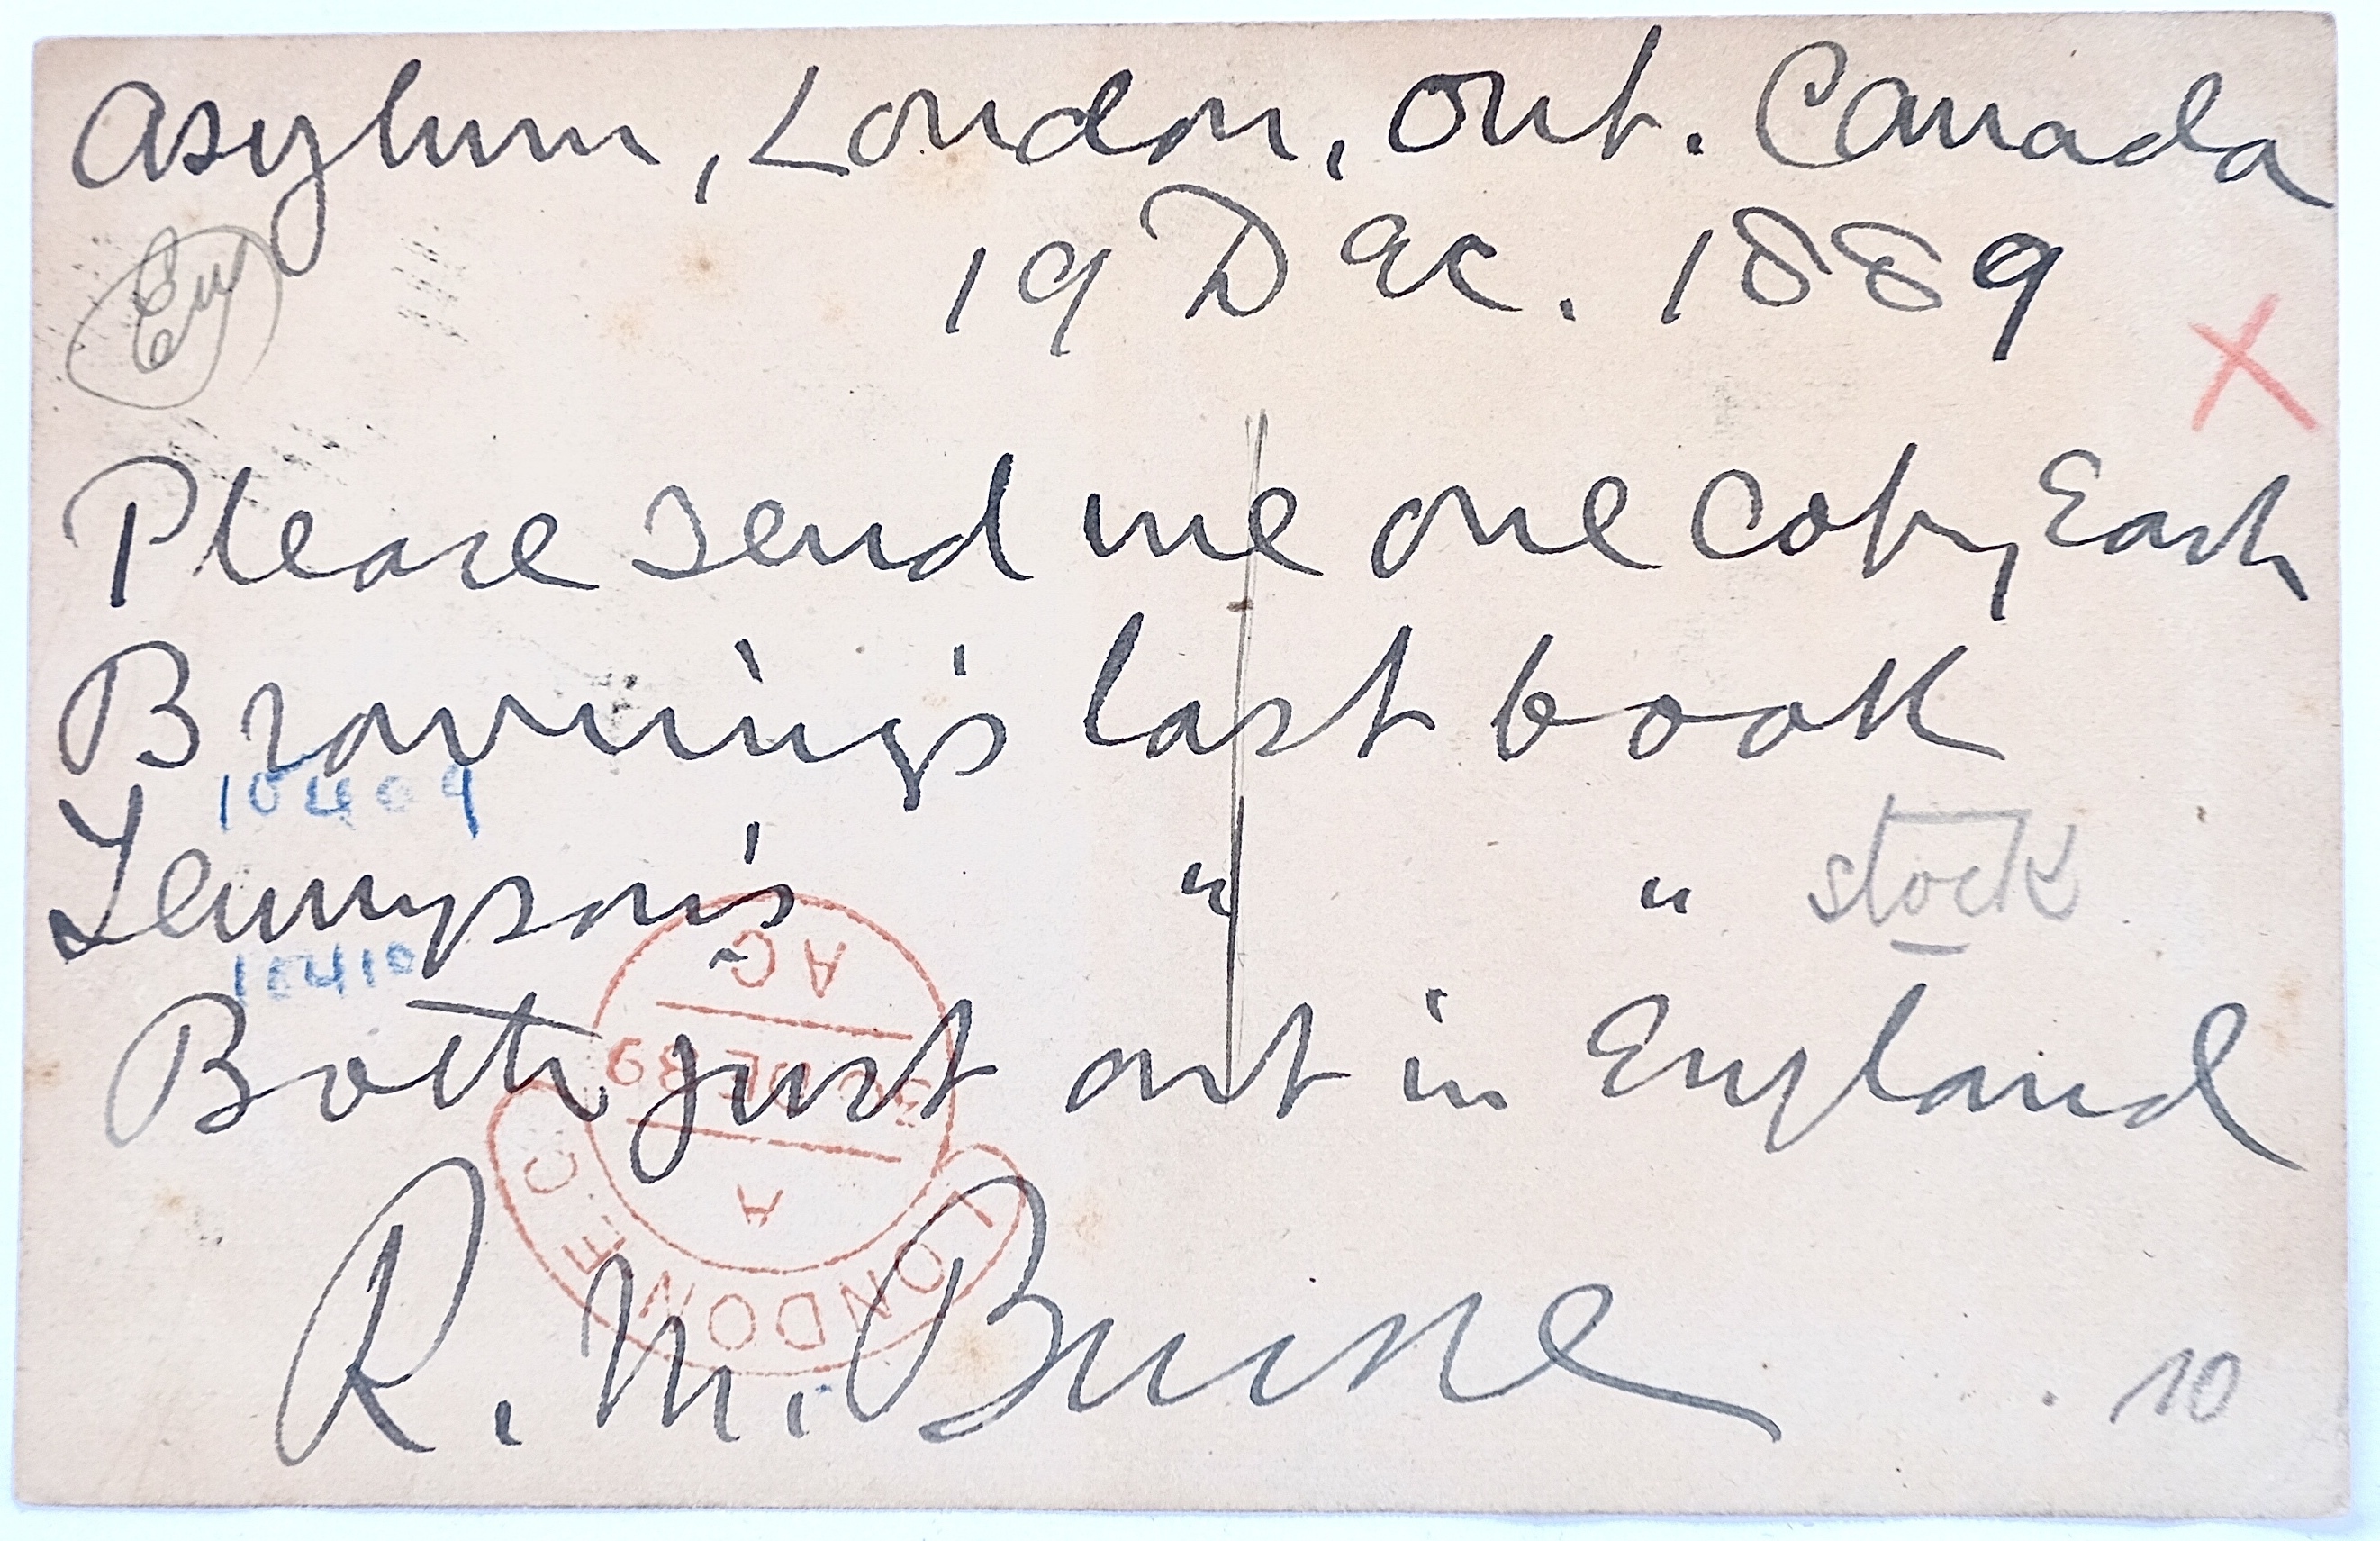 Asylum, London, Ont. Canada
19 Dec. 1889
Please send me one copy Each
Browning's last book
10409
Tennyson's " " stock
10410
Both just out in England
R. M. Bucke
10
LONDON E.C
A
30 DE 89
AG